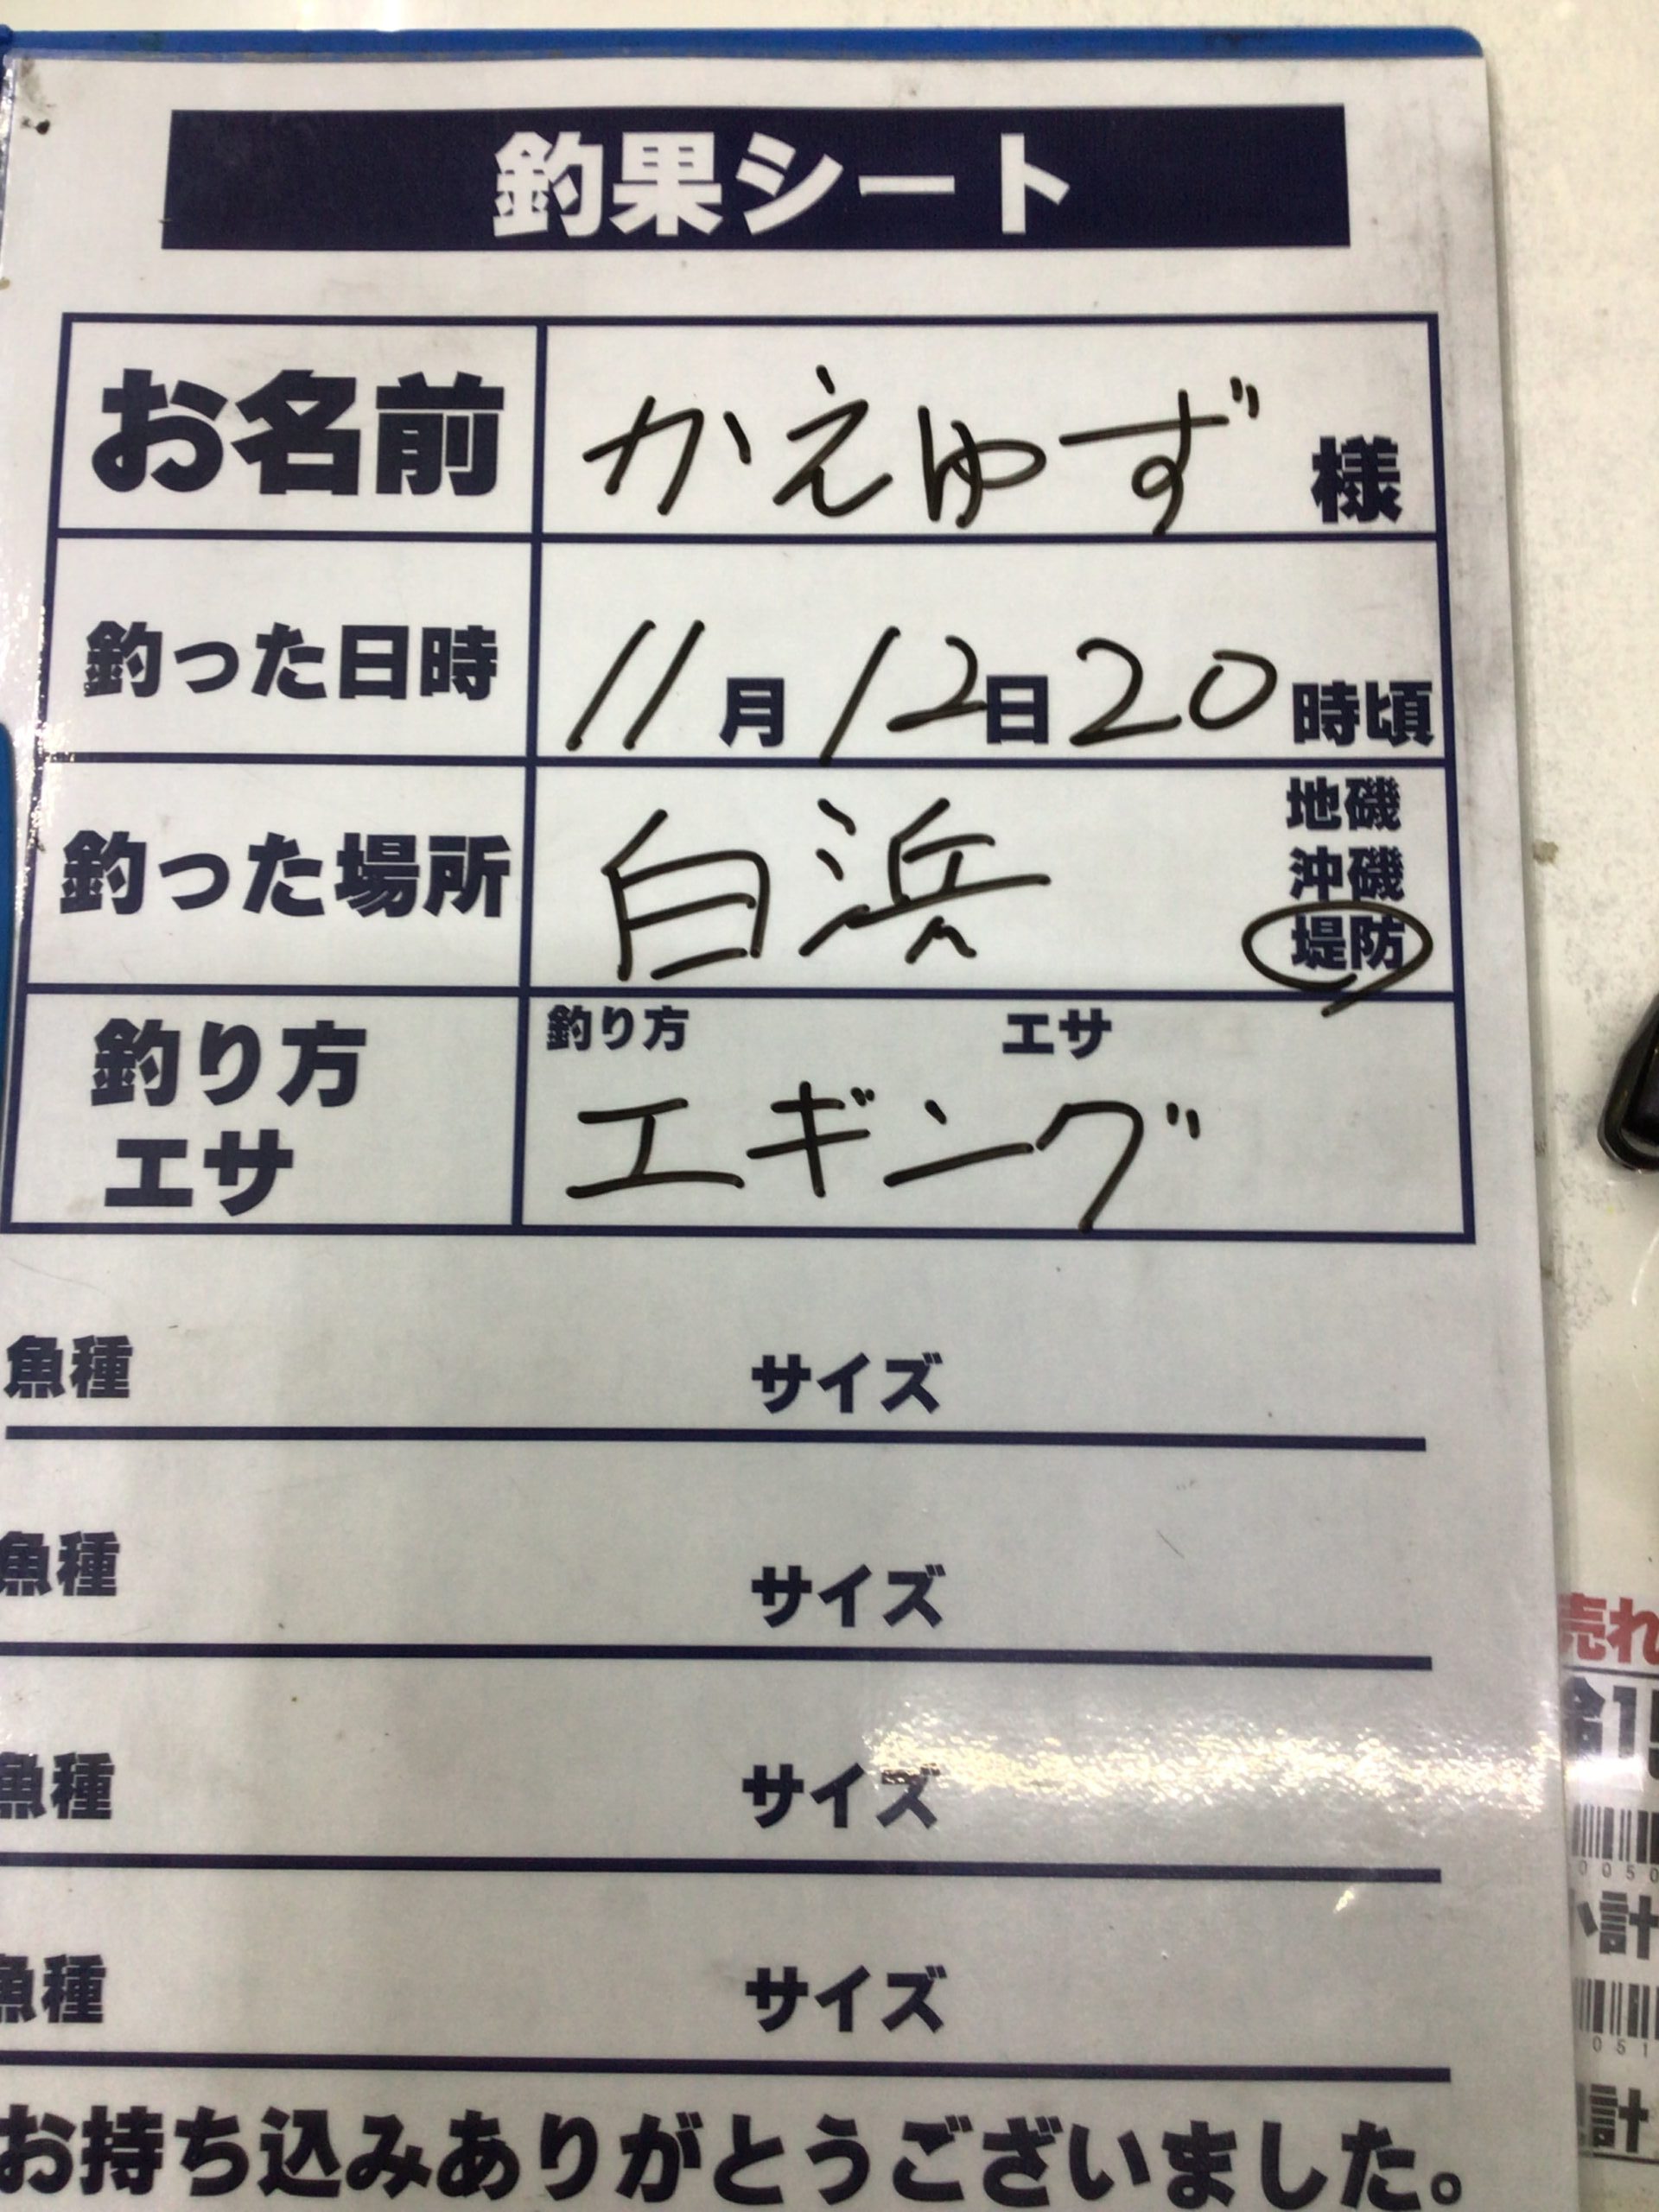 釣果シート
お名前 かえゆず 様
釣った日時 11月12日20時頃
釣った場所 白浜 地磯
沖磯
堤防
釣り方 エサ
釣り方 エサ
エギング
魚種 サイズ
魚種 サイズ
魚種 サイズ
魚種 サイズ
お持ち込みありがとうございました。
売れ
0050
小計
051
計